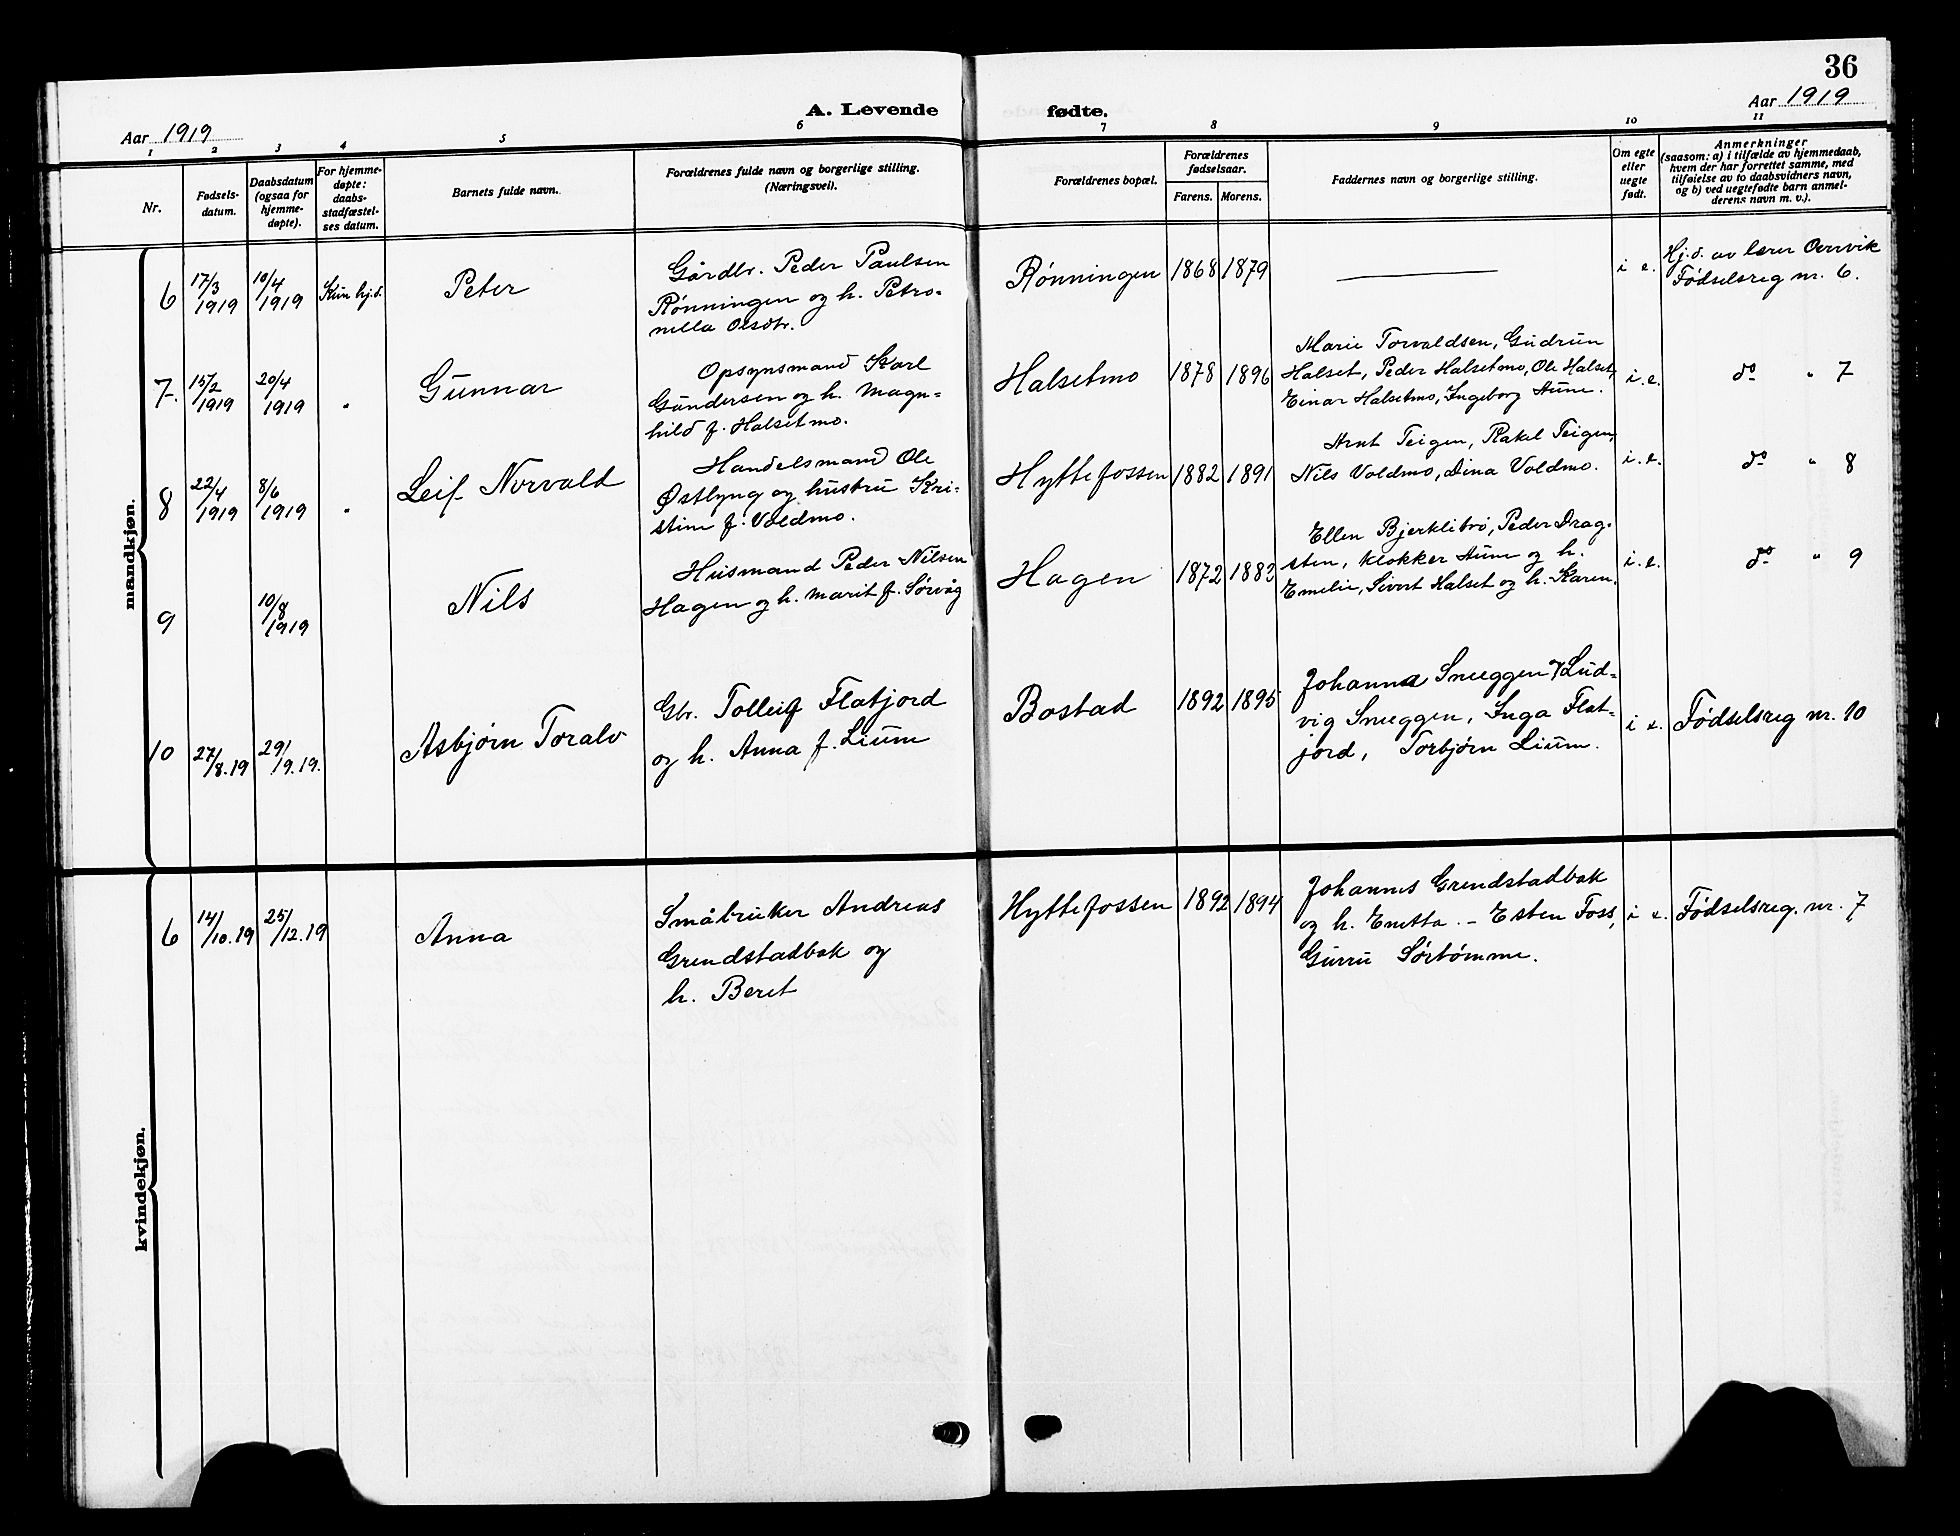 36
A. Levende fødte.
Aar 1919
Aar 1919
1 2 3 4 5 6 7 8 9 10 11
Nr.
Fødsels-
datum.
Daabsdatum
(ogsaa for
hjemme-
døpte).
For hjemme-
døpte:
daabs-
stadfæstel-
ses datum.
Barnets fulde navn.
Forældrenes fulde navn og borgerlige stilling.
(Næringsvei).
Forældrenes bopæl.
Forældrenes
fødselsaar.
Farens. Morens.
Faddernes navn og borgerlige stilling.
Om egte
eller
uegte
født.
Anmerkninger
(saasom: a) i tilfælde av hjemmedaab,
hvem der har forrettet samme, med
tilføielse av to daabsvidners navn,
og b) ved uegtefødte barn anmel-
derens navn m. v.).
mandkjøn.
6 17/3 1919 10/4 1919 Kun hj.d. Peter
Gårdbr. Peder Paulsen
Rønningen og h. Petro-
nella Olsdtr.
Rønningen 1868 1879 — i e.
Hj.d. av lærer Oervik
Fødselsreg nr. 6.
7. 15/2 1919 20/4 1919 " Gunnar
Opsynsmand Karl
Gundersen og h. Magn=
hild f. Halsetmo.
Halsetmo 1878 1896
Marie Torvaldsen, Gudrun
Halset, Peder Halsetmo, Ole Halset,
Einar Halsetmo, Ingeborg Hune.
i. e. do " 7
8 22/4 1919 8/6 1919 " Leif Norvald
Handelsmand Ole
Østlyng og hustru Kri-
stine f. Voldmo.
Hyttefossen 1882 1891
Arnt Teigen, Rakel Teigen,
Nils Voldmo, Dina Voldmo.
i. e. do " 8
9 10/8 1919 Nils
Husmand Peder Nilsen
Hagen og h. Marit f. Sørvåg
Hagen 1872 1883
Ellen Bjerklibrø, Peder Drag-
sten, klokker Hune og h.
Emelie, Sivert Halset og h. Karen.
i. e. do " 9
10 27/8.19 29/9.19. Asbjørn Toralv
Gbr. Tolleif Flatjord
og h. Anna f. Lium
Bostad 1892 1895
Johanna Snueggen, Lud-
vig Snueggen, Inga Flat-
jord, Torbjørn Lium.
i e. Fødselsreg nr. 10
kvindekjøn.
6 14/10.19 25/12.19 Anna
Småbruker Andreas
Grendstadbak og
h. Beret
Hyttefossen 1892 1894
Johannes Grendstadbak
og h. Enetta. – Esten Foss,
Gurru Sørtømme.
i e. Fødselsreg. nr. 7